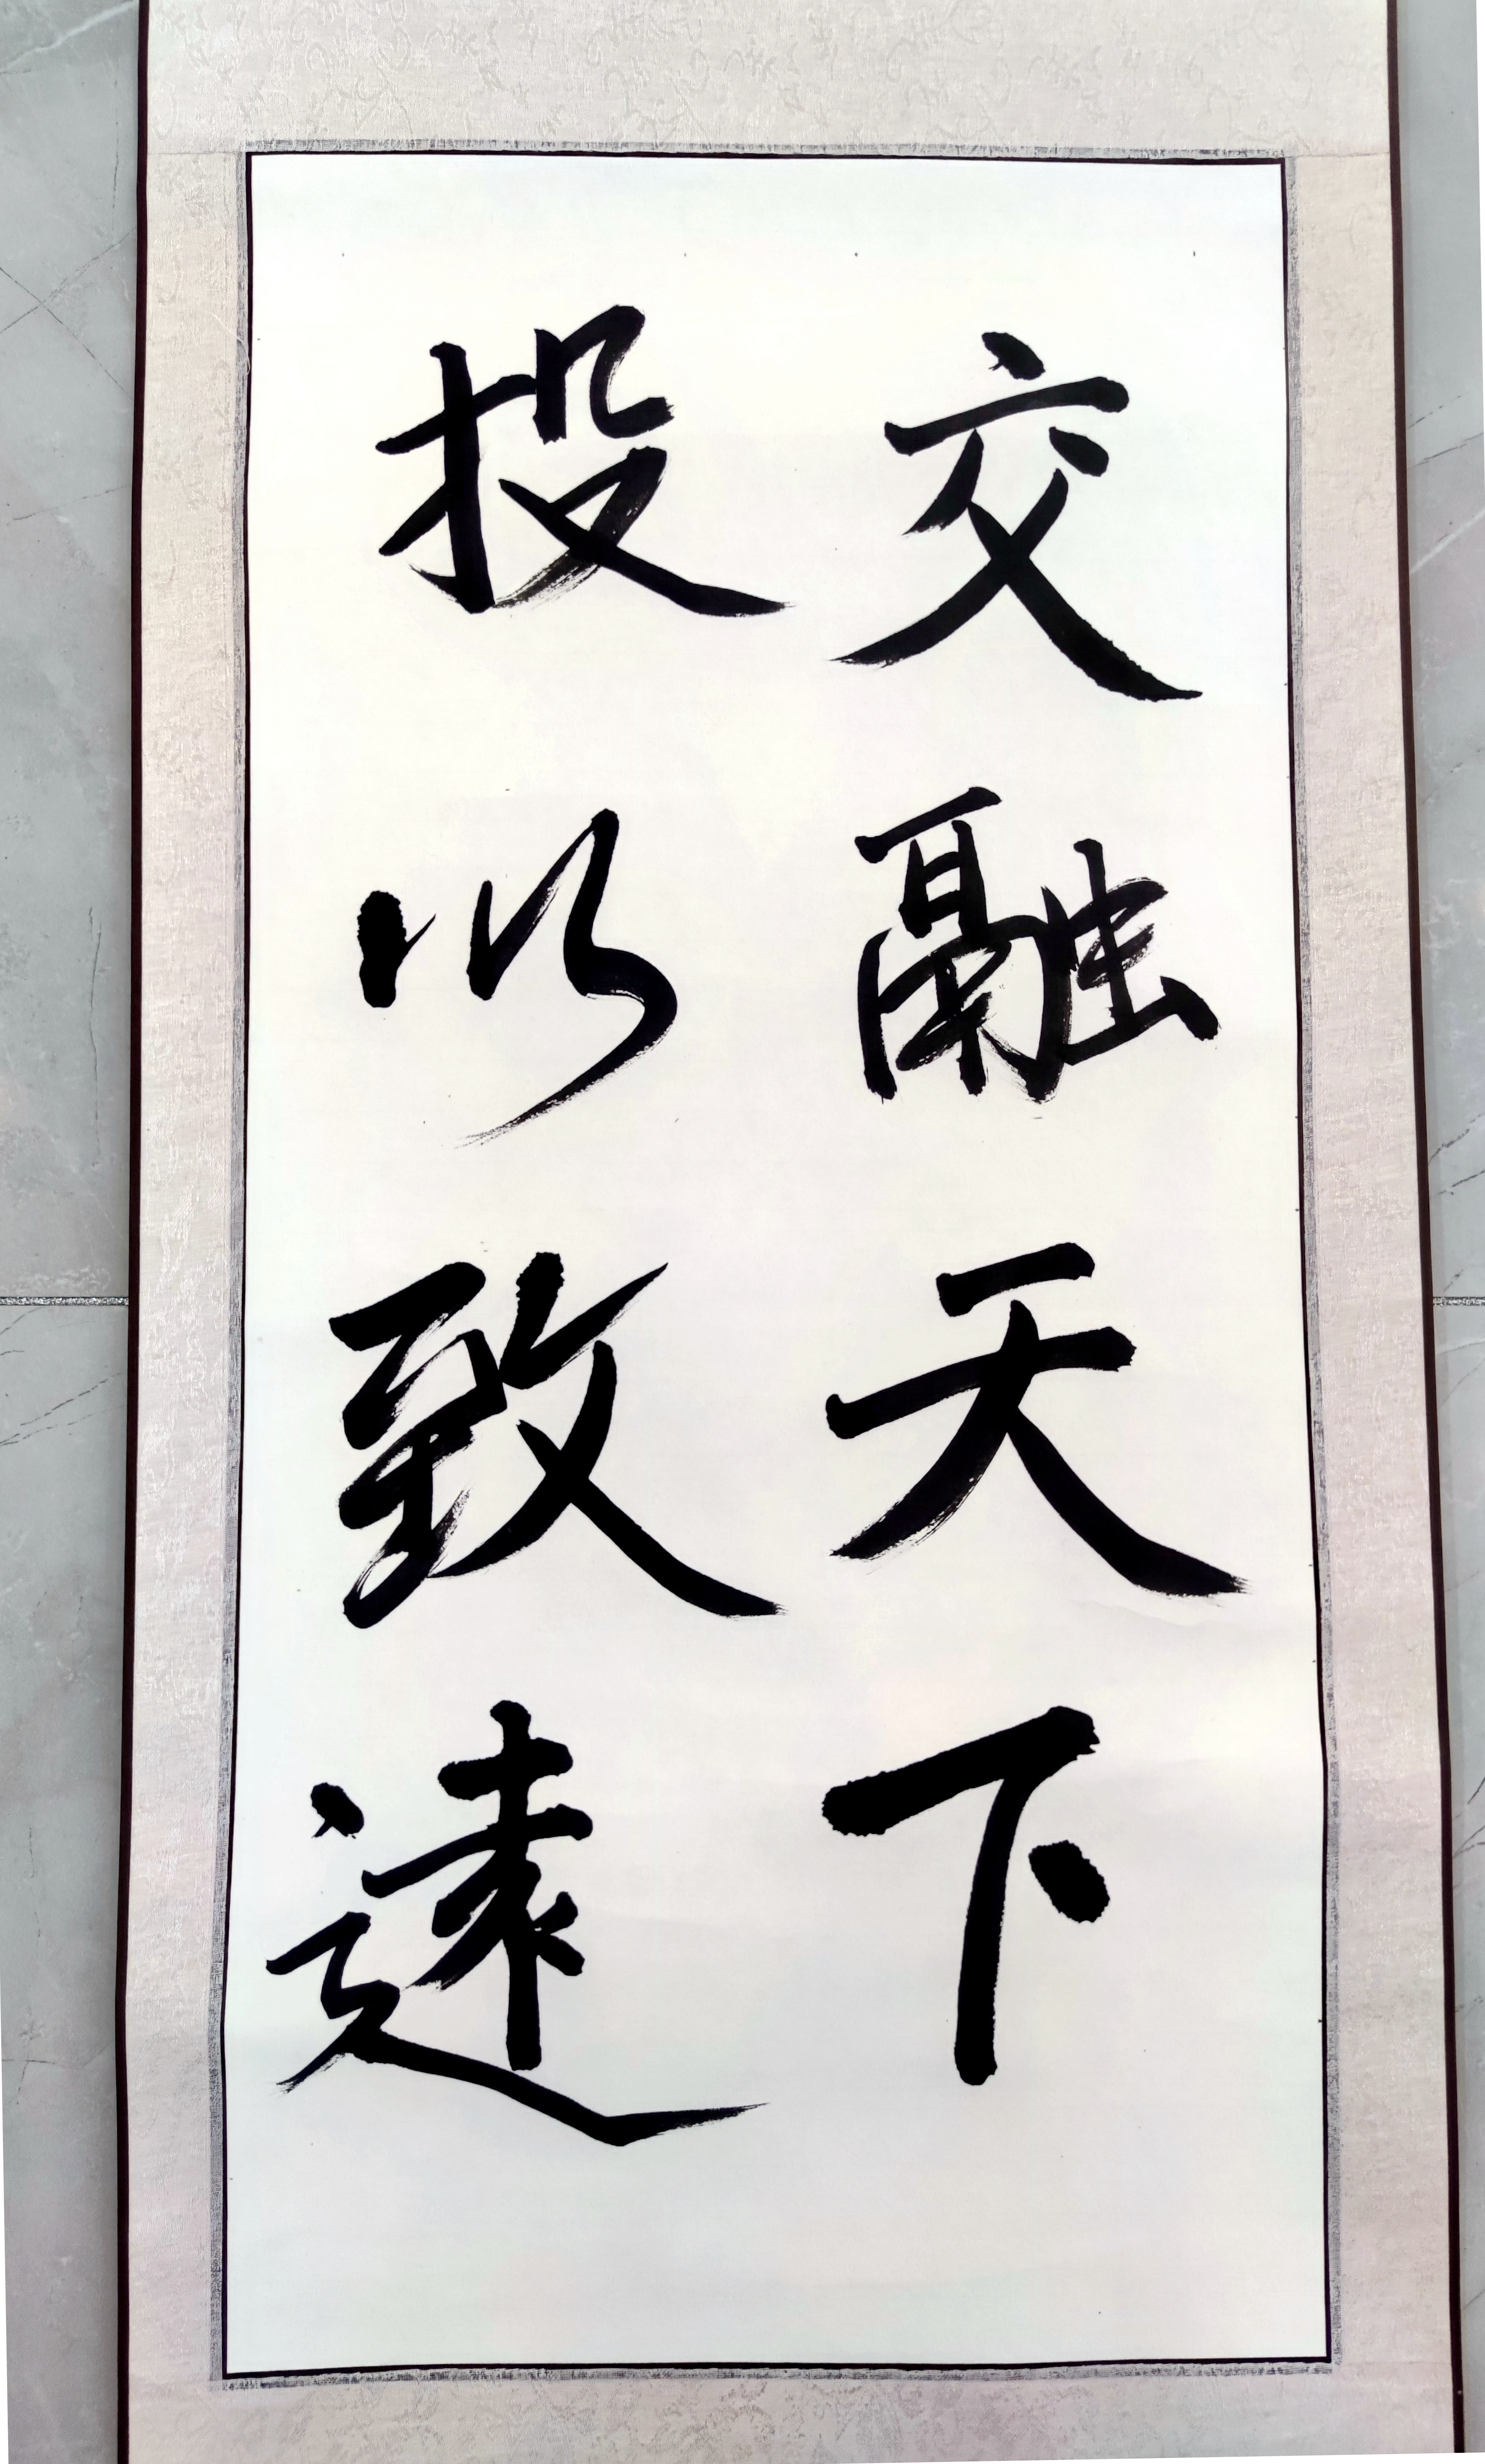 交融天下
投以致遠